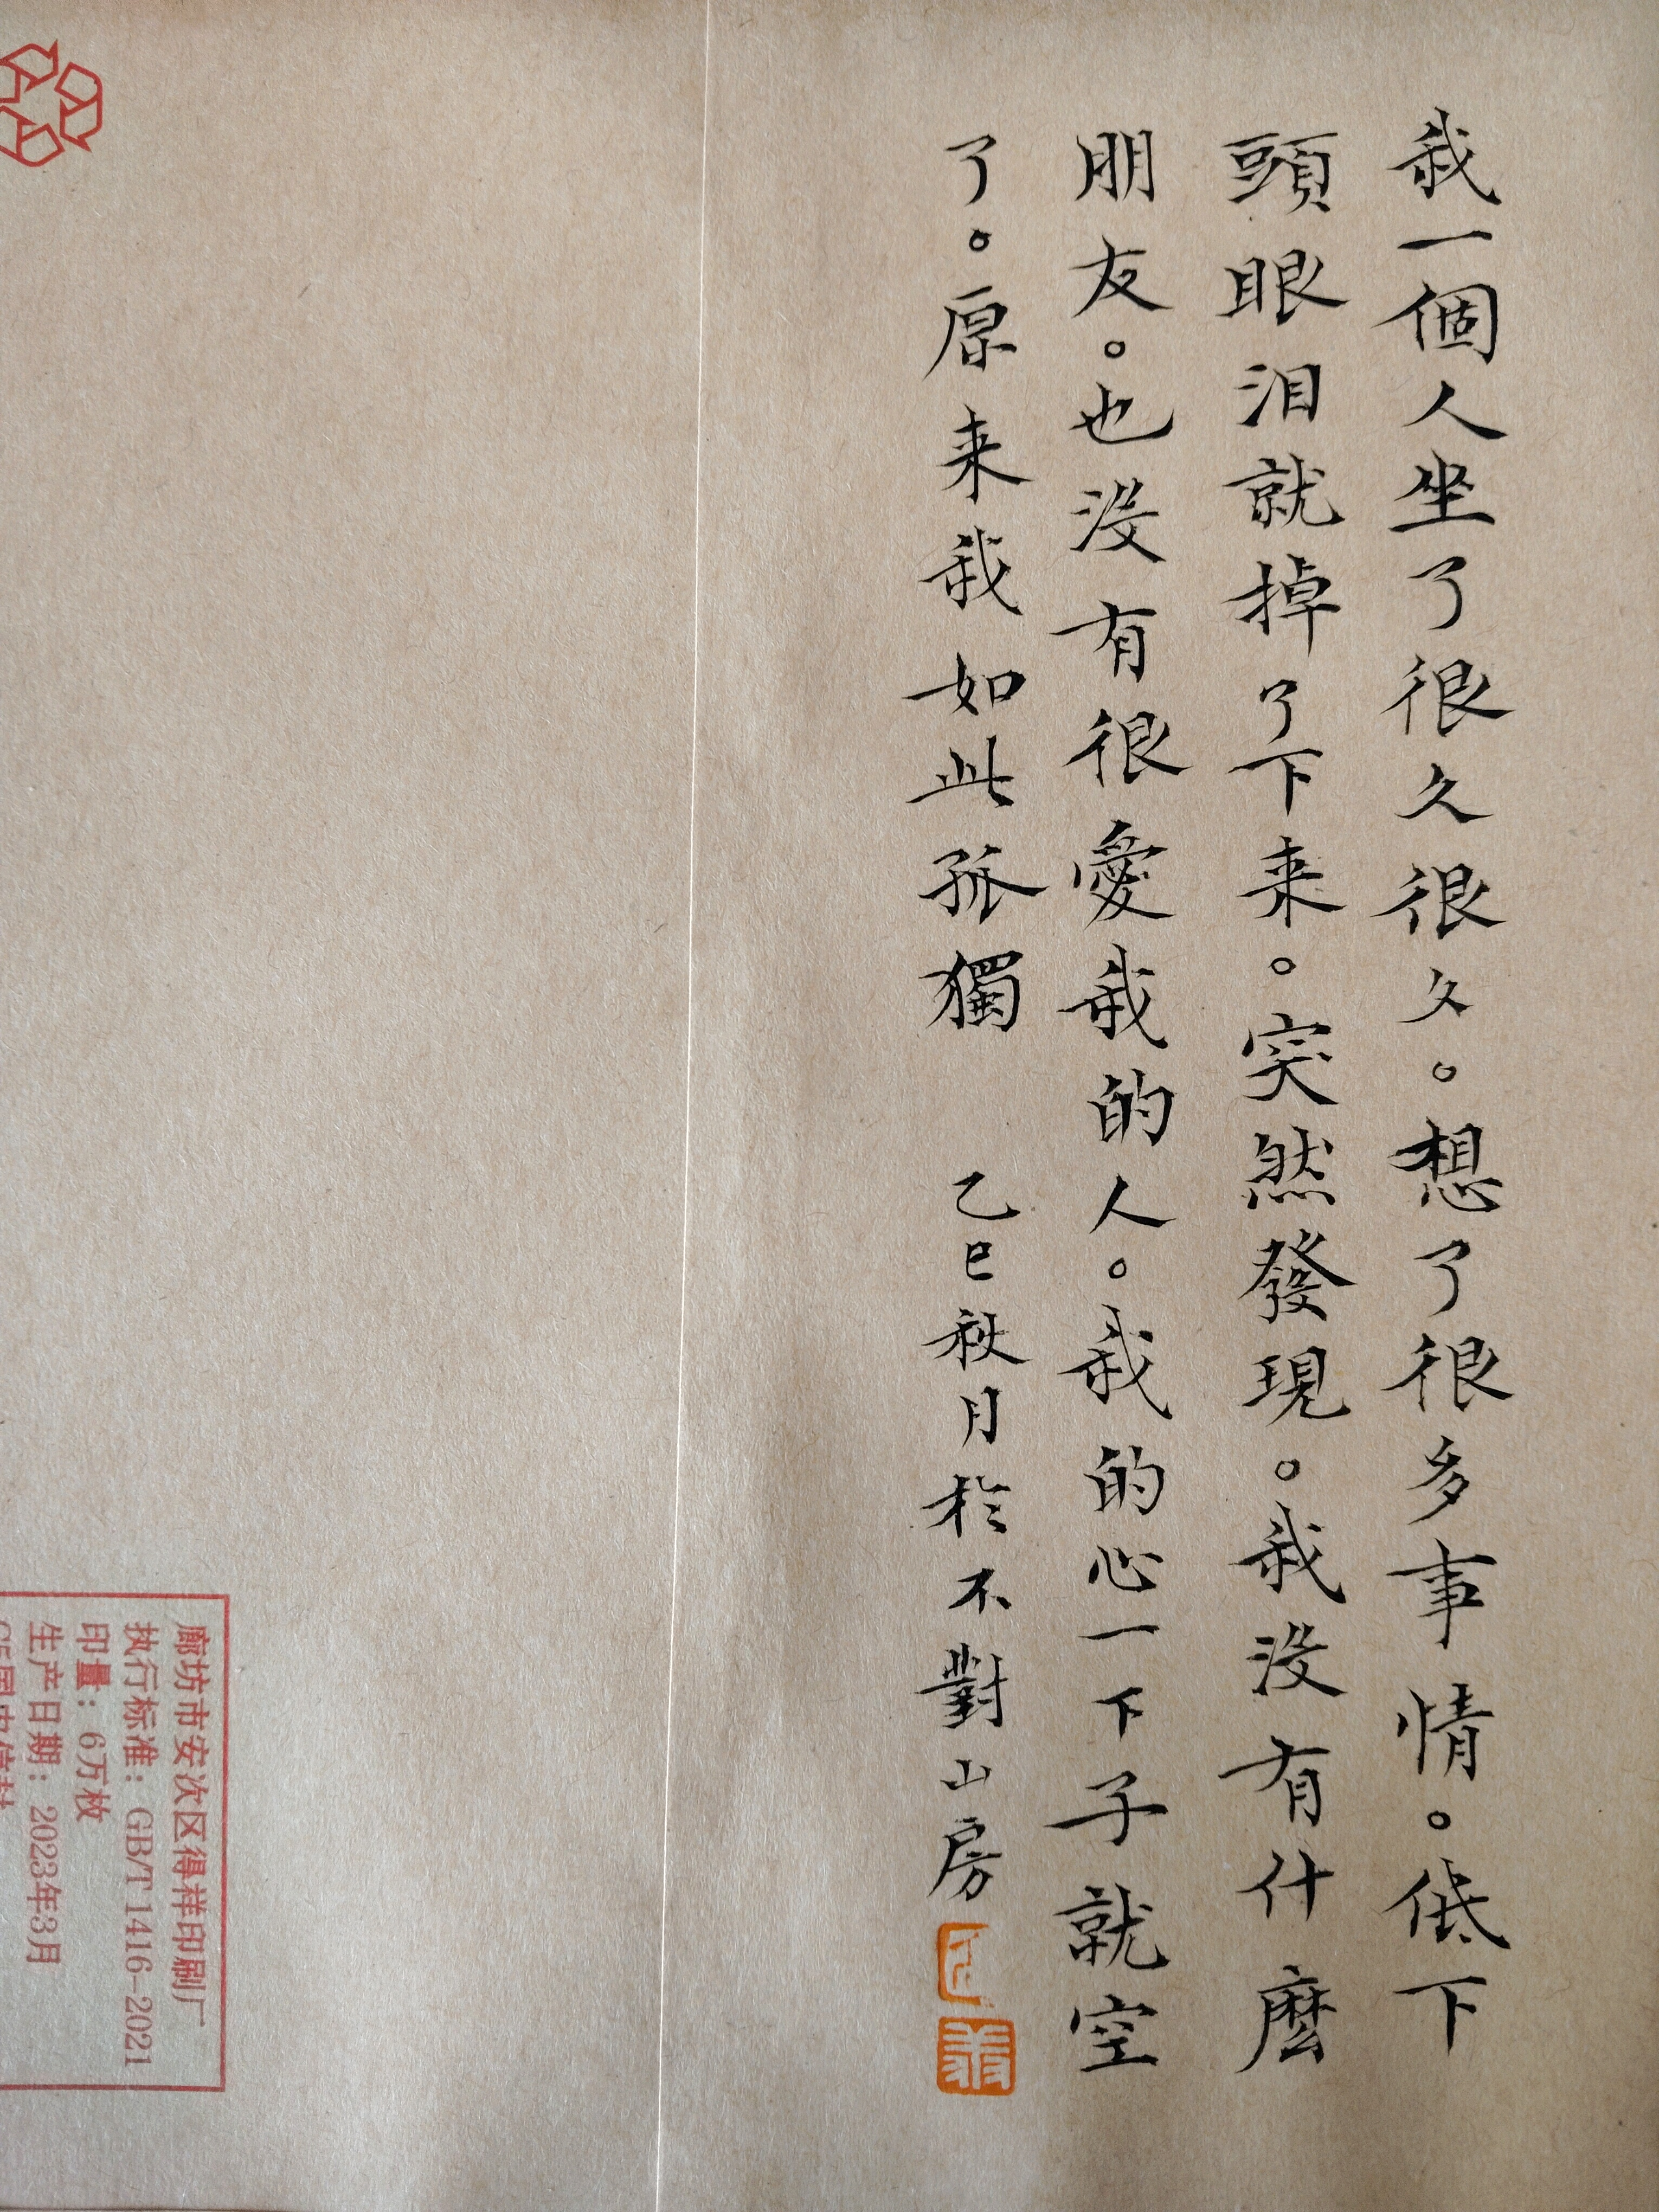 我一個人坐了很久很久。想了很多事情。低下
頭眼泪就掉了下来。突然發現。我没有什麽
朋友。也没有很愛我的人。我的心一下子就空
了。原来我如此孤獨
乙巳秋月於不對山房
廊坊市安次区得祥印刷厂
执行标准：GB/T 1416-2021
印量：6万枚
生产日期：2023年3月